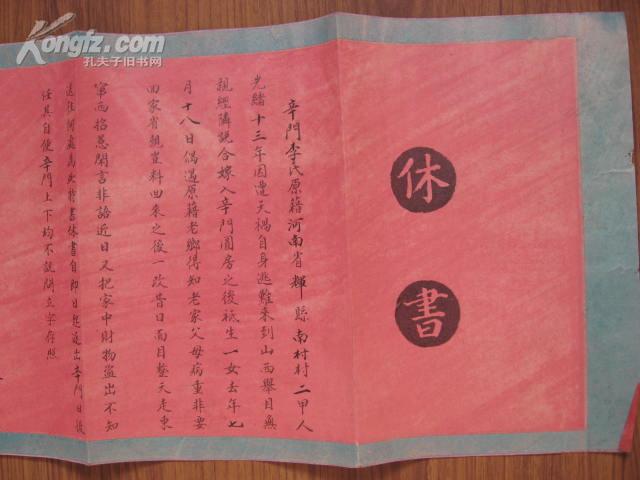 休書
辛門李氏原籍河南省輝縣南村村二甲人
光緒十三年因遭天禍自身逃難來到山西舉目無
親經隣說合嫁入辛門圓房之後祗生一女去年七
月十八日偶遇原籍老鄉得知老家父母病重非要
回家省親豈料回來之後一改昔日面目整天走東
窜西招惹閑言非語近日又把家中財物盜出不知
送往何處爲此特書休書自即日起逐出辛門日後
任其自便辛門上下均不說閑立字存照
Kongfz.com
孔夫子旧书网